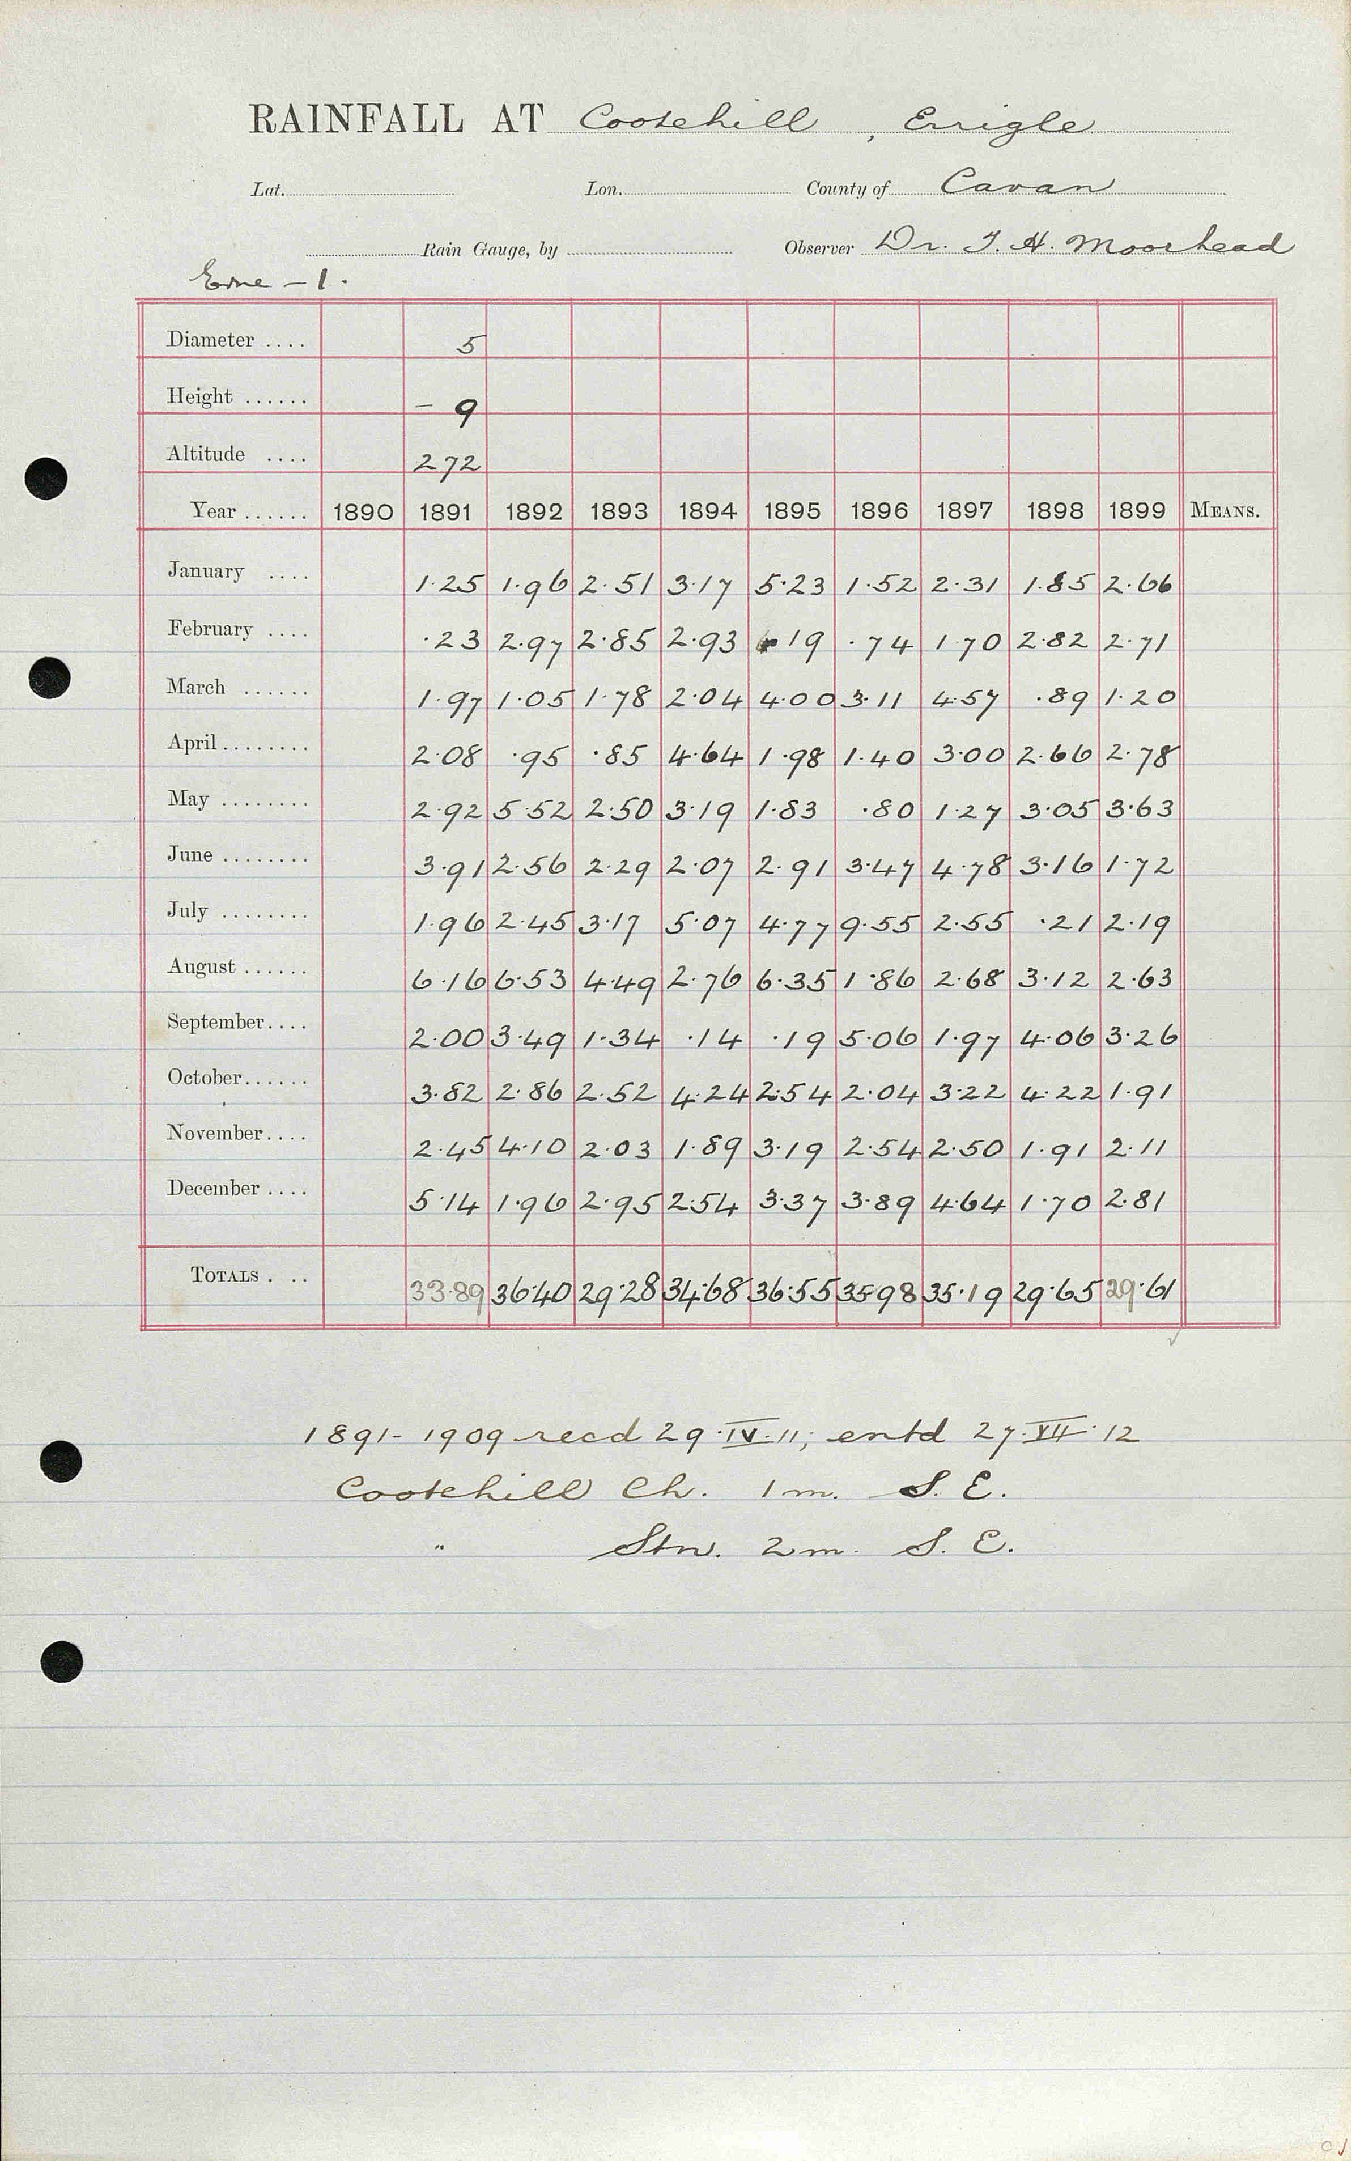 RAINFALL AT Cootehill, Errigle
Lat. Lon. County of Cavan
Rain Gauge, by Observer Dr. T. H. Moorhead
Erne - 1.
Diameter .... 5
Height ...... - 9
Altitude .... 272
Year ...... 1890 1891 1892 1893 1894 1895 1896 1897 1898 1899 MEANS.
January .... 1.25 1.96 2.51 3.17 5.23 1.52 2.31 1.85 2.66
February .... .23 2.97 2.85 2.93 .19 .74 1.70 2.82 2.71
March ...... 1.97 1.05 1.78 2.04 4.00 3.11 4.57 .89 1.20
April ........ 2.08 .95 .85 4.64 1.98 1.40 3.00 2.66 2.78
May ........ 2.92 5.52 2.50 3.19 1.83 .80 1.27 3.05 3.63
June ........ 3.91 2.56 2.29 2.07 2.91 3.47 4.78 3.16 1.72
July ........ 1.96 2.45 3.17 5.07 4.77 9.55 2.55 .21 2.19
August ...... 6.16 6.53 4.49 2.76 6.35 1.86 2.68 3.12 2.63
September.... 2.00 3.49 1.34 .14 .19 5.06 1.97 4.06 3.26
October...... 3.82 2.86 2.52 4.24 2.54 2.04 3.22 4.22 1.91
November.... 2.45 4.10 2.03 1.89 3.19 2.54 2.50 1.91 2.11
December .... 5.14 1.96 2.95 2.54 3.37 3.89 4.64 1.70 2.81
TOTALS . .. 33.89 36.40 29.28 34.68 36.55 35.98 35.19 29.65 29.61
1891-1909 recd 29.IV.11; entd 27.VII.12
Cootehill Ch. 1 m. S. E.
" Stn. 2 m. S. E.